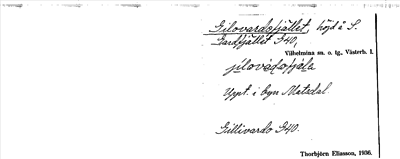 Gilovardofjället, höjd å S.
Gardfjället G40,
Vilhelmina sn. o. tg., Västerb. l.
Uppt. i byn Matsdal.
Gillivardo G40.
Thorbjörn Eliasson, 1936.